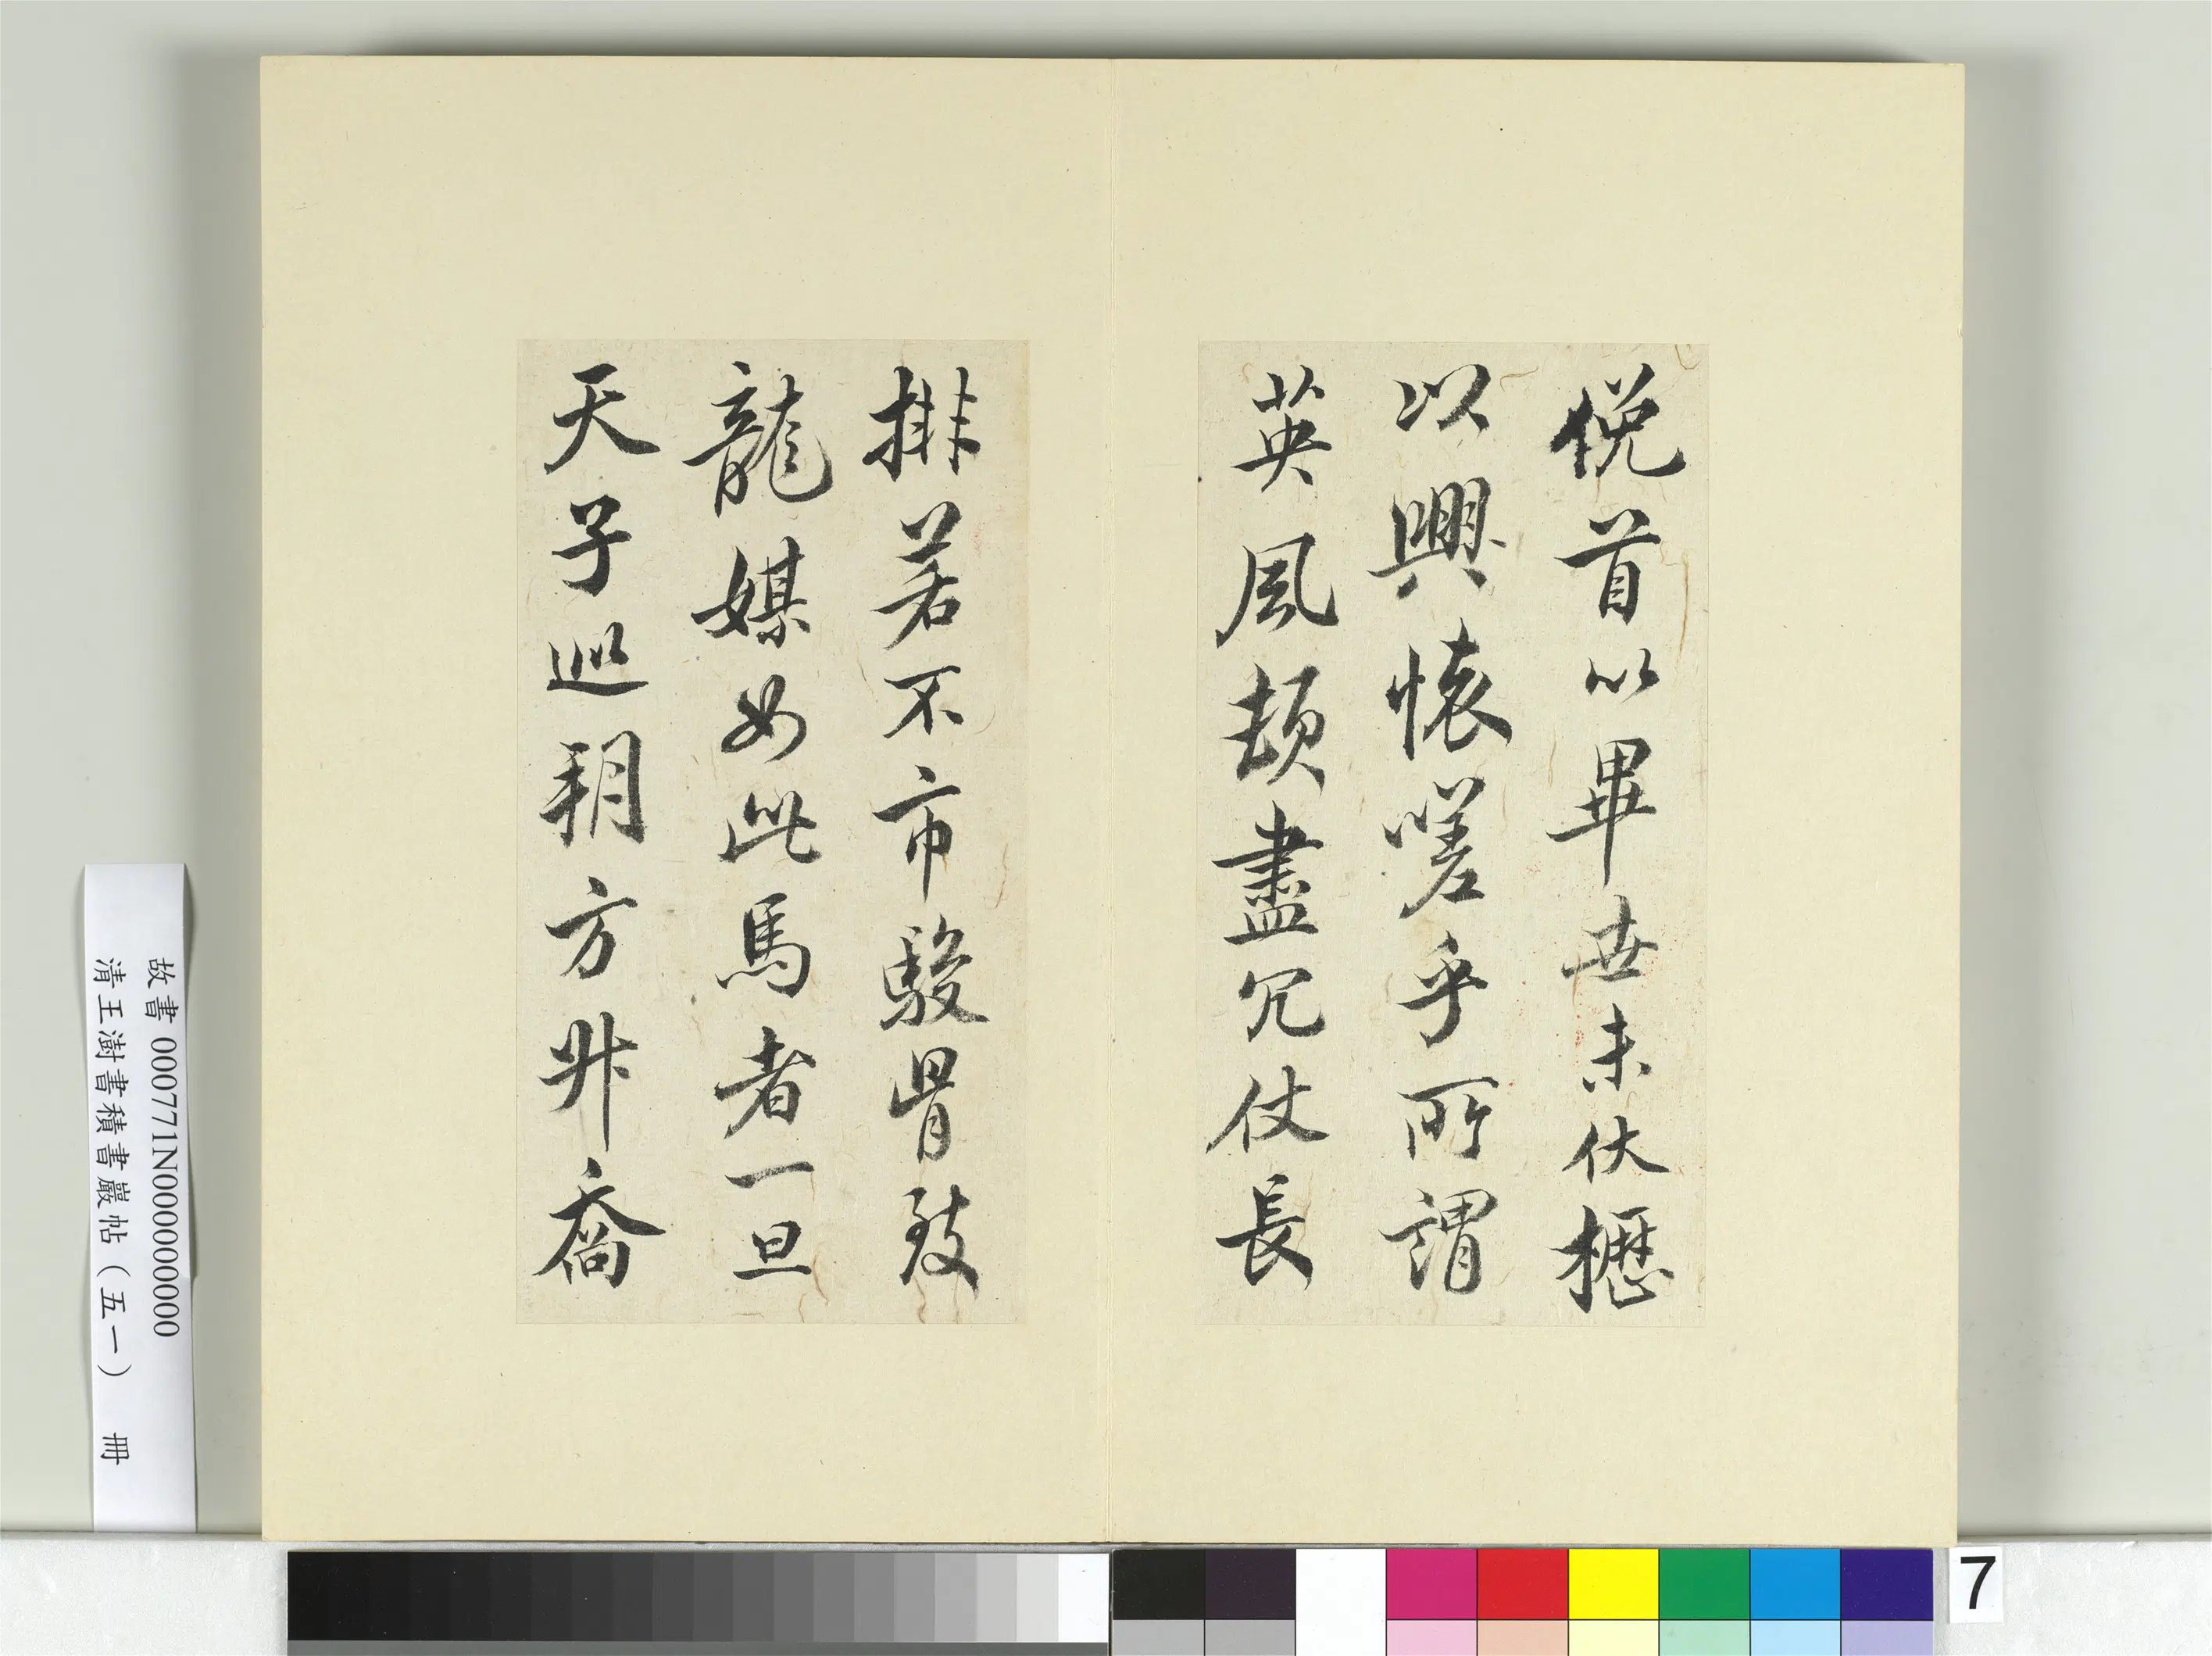 俛首以畢世未伏櫪
以興懷嗟乎所謂
英風頓盡冗仗長
排若不市駿骨致
龍媒如此馬者一旦
天子巡朔方升喬
故書 000771N000000000
清王澍書積書巖帖（五一） 冊
7